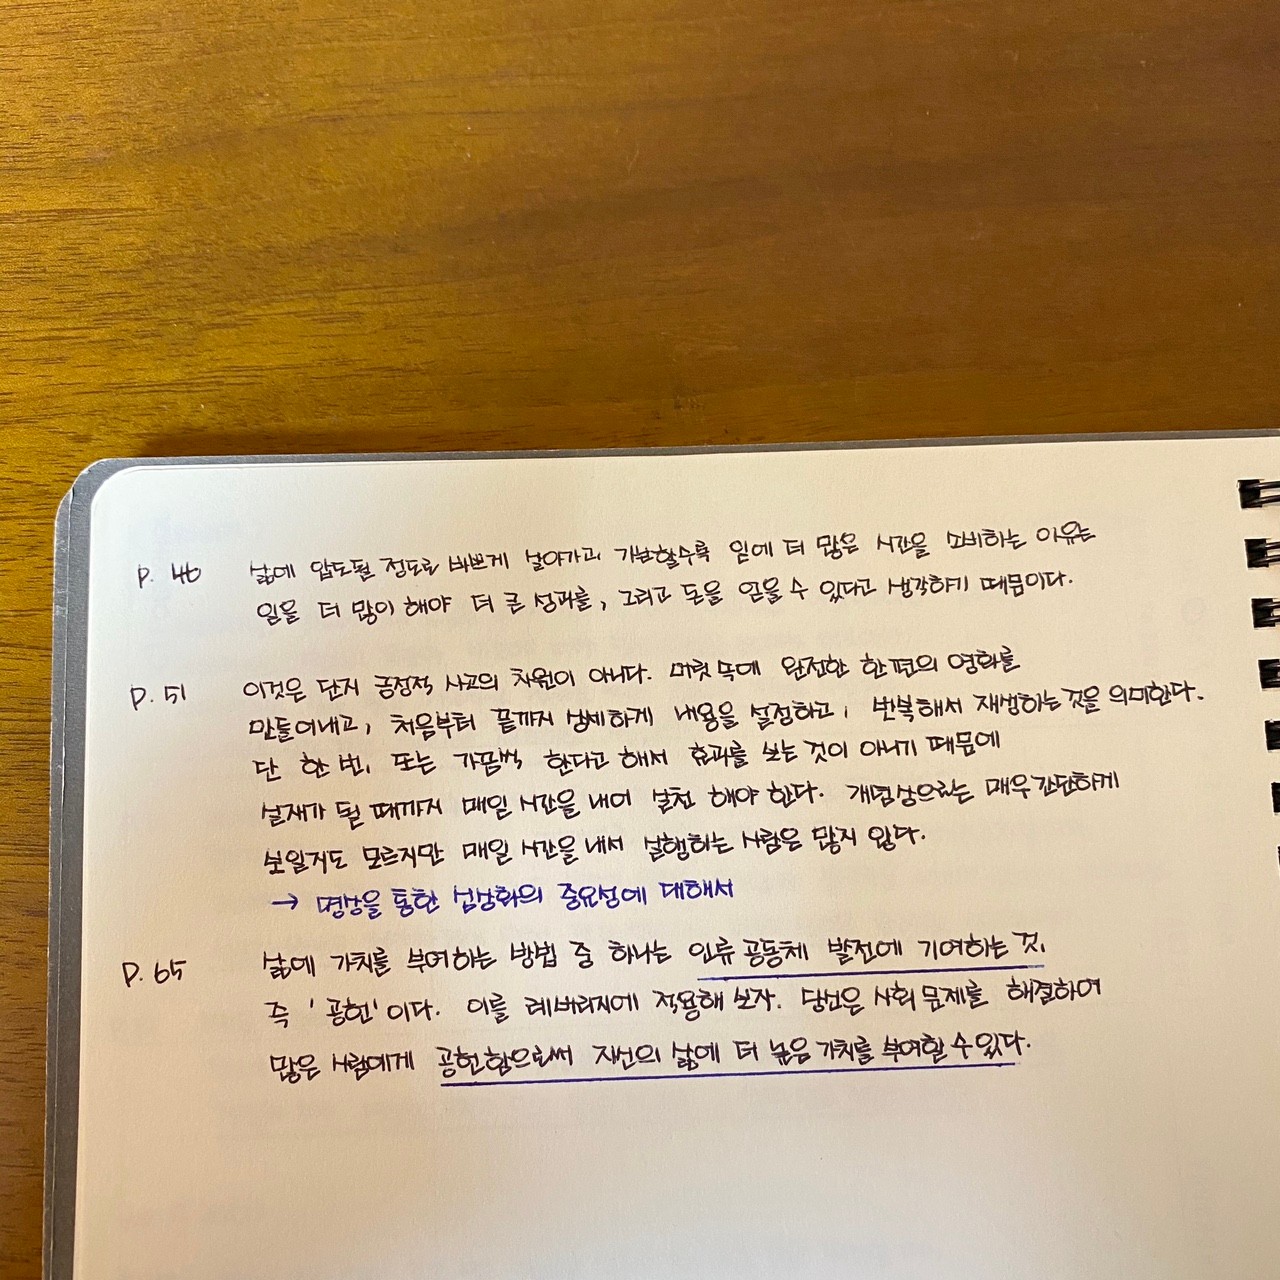 P. 46 삶에 압도될 정도로 바쁘게 살아가고, 가난할수록 일에 더 많은 시간을 소비하는 이유는
일을 더 많이 해야 더 큰 성과를, 그리고 돈을 얻을 수 있다고 생각하기 때문이다.
P. 51 이것은 단지 긍정적 사고의 차원이 아니다. 머릿속에 완전한 한 편의 영화를
만들어내고, 처음부터 끝까지 상세하게 내용을 설정하고, 반복해서 재생하는 것을 의미한다.
단 한 번, 또는 가끔씩 한다고 해서 효과를 보는 것이 아니기 때문에
실재가 될 때까지 매일 시간을 내어 실천 해야 한다. 개념상으로는 매우 간단하게
보일지도 모르지만 매일 시간을 내서 실행하는 사람은 많지 않다.
→ 명상을 통한 심상화의 중요성에 대해서
P. 65 삶에 가치를 부여하는 방법 중 하나는 인류 공동체 발전에 기여하는 것,
즉 '공헌'이다. 이를 레버리지에 적용해 보자. 당신은 사회 문제를 해결하여
많은 사람에게 공헌함으로써 자신의 삶에 더 높은 가치를 부여할 수 있다.